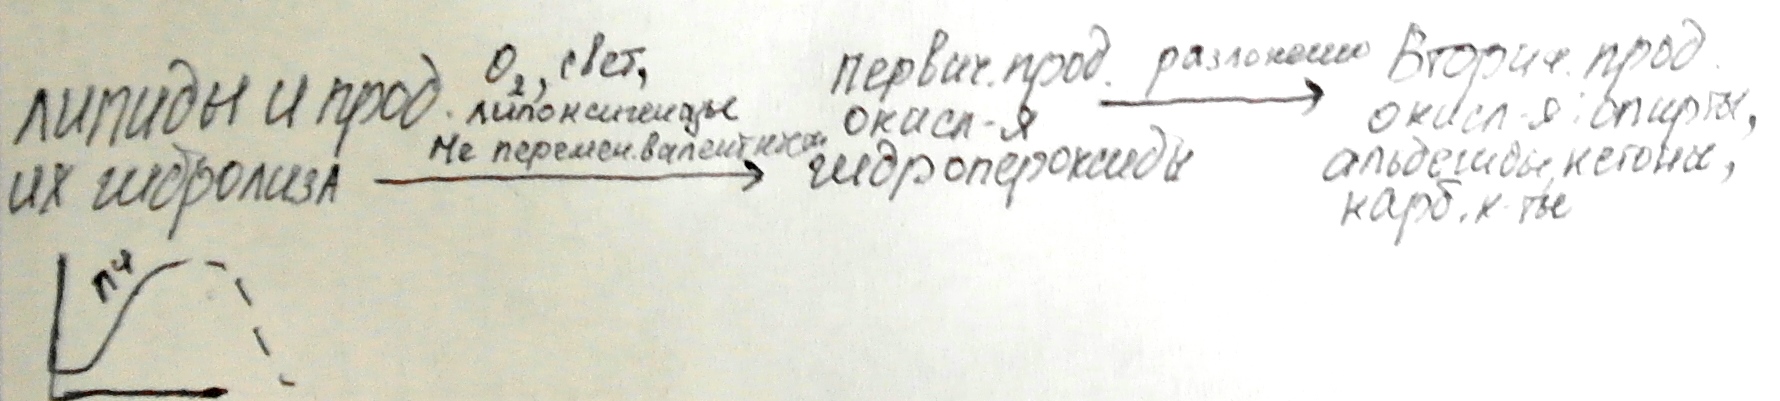 липиды и прод.
их гидролиза
O₂, свет,
липоксигеназы
Ме перемен. валентности
первич. прод.
окисл-я
гидропероксиды
разложение
Вторич. прод.
окисл-я: спирты,
альдегиды, кетоны,
карб. к-ты
ПЧ